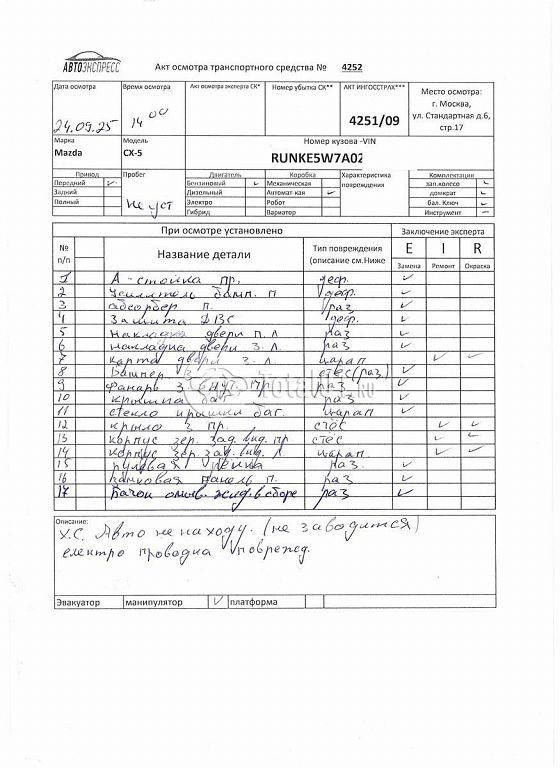 АВТОЭКСПРЕСС
Акт осмотра транспортного средства № 4252
Дата осмотра Время осмотра Акт осмотра эксперта СК* Номер убытка СК** АКТ ИНГОССТРАХ*** Место осмотра:
24.09.25 14 00 4251/09 г. Москва,
ул. Стандартная д.6,
стр.17
Марка Модель Номер кузова -VIN
Mazda CX-5 RUNKE5W7A02
Привод Пробег Двигатель Коробка Характеристика повреждения Комплектация
Передний Бензиновый Механическая зап.колесо
Задний Дизельный Автомат-кая домкрат
Полный Не уст Электро Робот бал. Ключ
Гибрид Вариатор Инструмент
При осмотре установлено Заключение эксперта
№ п/п Название детали Тип повреждения (описание см.Ниже E I R
Замена Ремонт Окраска
1 А-стойка пр. деф.
2 Усилитель бамп. п деф.
3 абсорбер п. раз
4 Защита ДВС деф.
5 накладка двери п.л раз
6 накладка двери з.л. раз
7 карта двери з.л. царап
8 Бампер з стес(раз)
9 фонарь з пр раз
10 крышка баг раз
11 стекло крышки баг. царап
12 крыло з пр. стес
13 корпус зер. зад. вид. пр стес
14 корпус зер. зад. вид. л царап.
15 раз.
16 панель п. раз
17 Бачок омыв. жид. в сборе раз
Описание:
У.С. Авто не на ходу. (не заводится)
електро проводка поврежд.
Эвакуатор манипулятор платформа
TOTAL RU